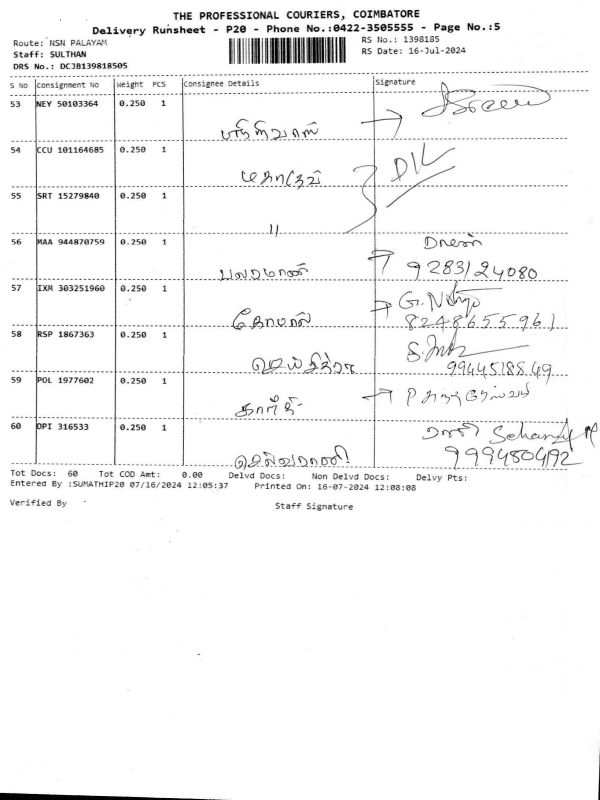 THE PROFESSIONAL COURIERS, COIMBATORE
Delivery Runsheet - P20 - Phone No.:0422-3505555 - Page No.:5
Route: NSN PALAYAM
RS No.: 1398185
Staff: SULTHAN
RS Date: 16-Jul-2024
DRS No.: DCJB139818505
S No Consignment No Weight PCS Consignee Details Signature
53 NEY 50103364 0.250 1
54 CCU 101164685 0.250 1
மகாதேவி
55 SRT 15279840 0.250 1
11
56 MAA 944870759 0.250 1
பலராமன்
9283124080
57 IXM 303251960 0.250 1
கோபால்
8248655961
58 RSP 1867363 0.250 1
9944518849
59 POL 1977602 0.250 1
கார்த்தி
60 DPI 316533 0.250 1
செல்வராணி
9994804192
Tot Docs: 60 Tot COD Amt: 0.00 Delvd Docs: Non Delvd Docs: Delvy Pts:
Entered By :SUMATHIP20 07/16/2024 12:05:37 Printed On: 16-07-2024 12:08:08
Verified By
Staff Signature